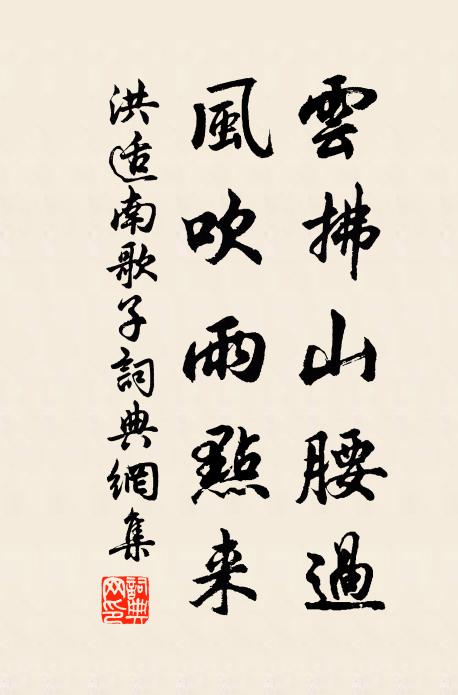 雲拂山腰過
風吹雨點来
洪适南歌子詞典網集
詞典網印